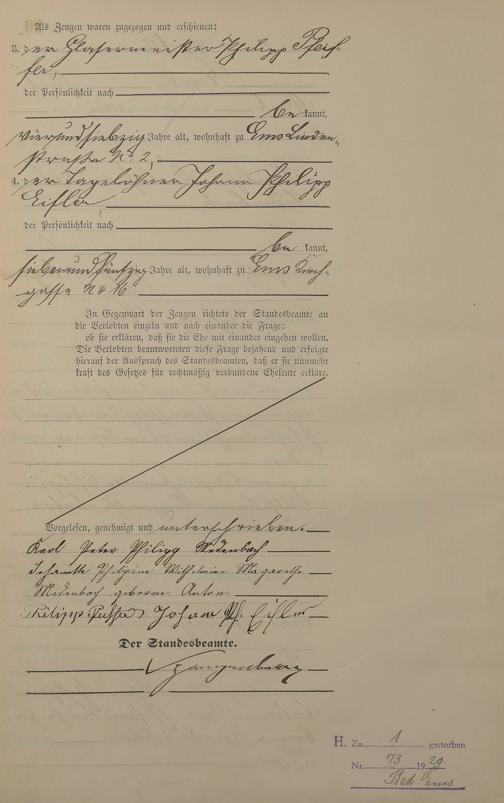 Als Zeugen waren zugezogen und erschienen:
3. der Glasermeister Philipp Pfeif-
fer,
der Persönlichkeit nach
be kannt,
vierundsiebzig Jahre alt, wohnhaft zu Ems Linden-
straße No 2,
4. der Tagelöhner Johann Philipp
Eifler,
der Persönlichkeit nach
be kannt,
siebenundfünfzig Jahre alt, wohnhaft zu Ems Kirch-
gasse No 16
In Gegenwart der Zeugen richtete der Standesbeamte an
die Verlobten einzeln und nach einander die Frage:
ob sie erklären, daß sie die Ehe mit einander eingehen wollen.
Die Verlobten beantworteten diese Frage bejahend und erfolgte
hierauf der Ausspruch des Standesbeamten, daß er sie nunmehr
kraft des Gesetzes für rechtmäßig verbundene Eheleute erkläre.
Vorgelesen, genehmigt und unterschrieben.
Karl Peter Philipp Medenbach
Philipine Wilhelmine Margarethe
Medenbach geborene Anton
Philipp Johann Ph. Eifler
Der Standesbeamte.
Spangenberg
H. Zu 1 gestorben
Nr. 73 1929
Bad Ems